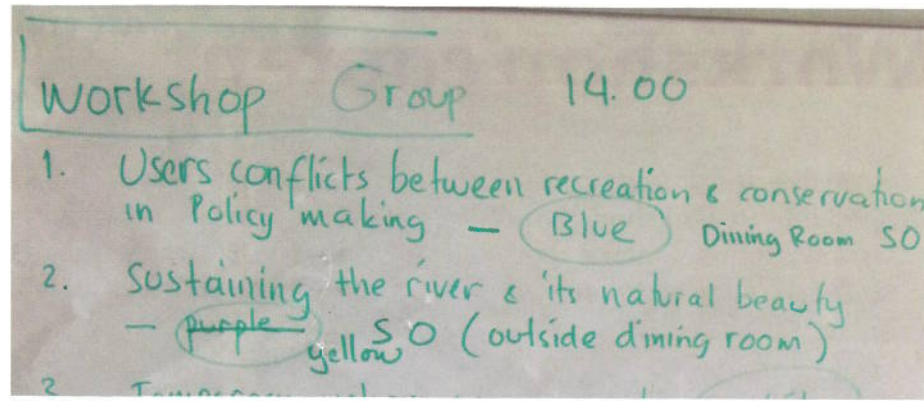 Workshop Group 14.00
1. Users conflicts between recreation & conservation
in Policy making — Blue Dining Room SO
2. Sustaining the river & its natural beauty
— purple yellow SO (outside dining room)
3